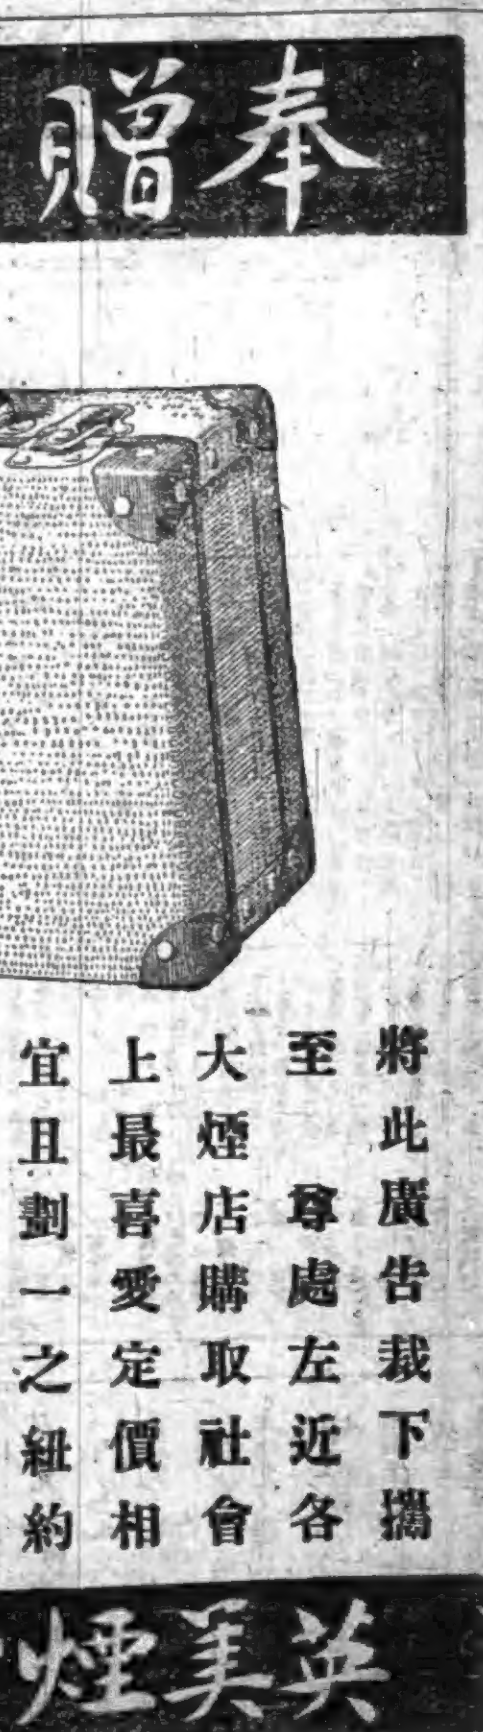 奉贈
將此廣告裁下攜
至　尊處左近各
大煙店購取社會
上最喜愛定價相
宜且劃一之紐約
英美煙